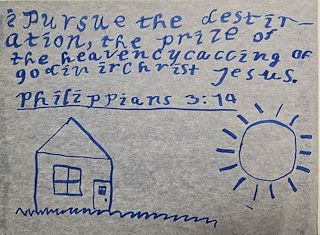 i Pursue the destin-
ation, the prize of
the heavencycalling of
godin irchrist Jesus.
Philippians 3:14